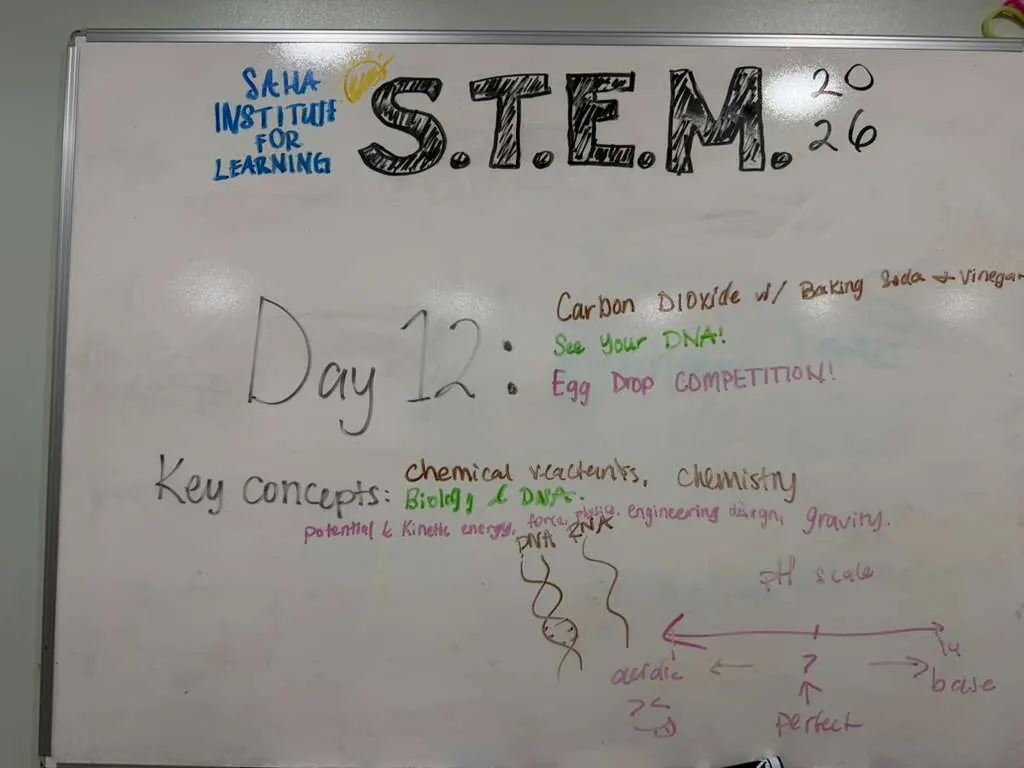 SAHA
INSTITUTE
FOR
LEARNING
S.T.E.M.
20
26
Day 12:
Carbon Dioxide w/ Baking Soda + Vinegar
See Your DNA!
Egg Drop COMPETITION!
Key concepts:
chemical reactants, chemistry
Biology & DNA.
potential & Kinetic energy, force, physics, engineering design, gravity.
DNA RNA
pH scale
14
acidic ← 7 → base
perfect